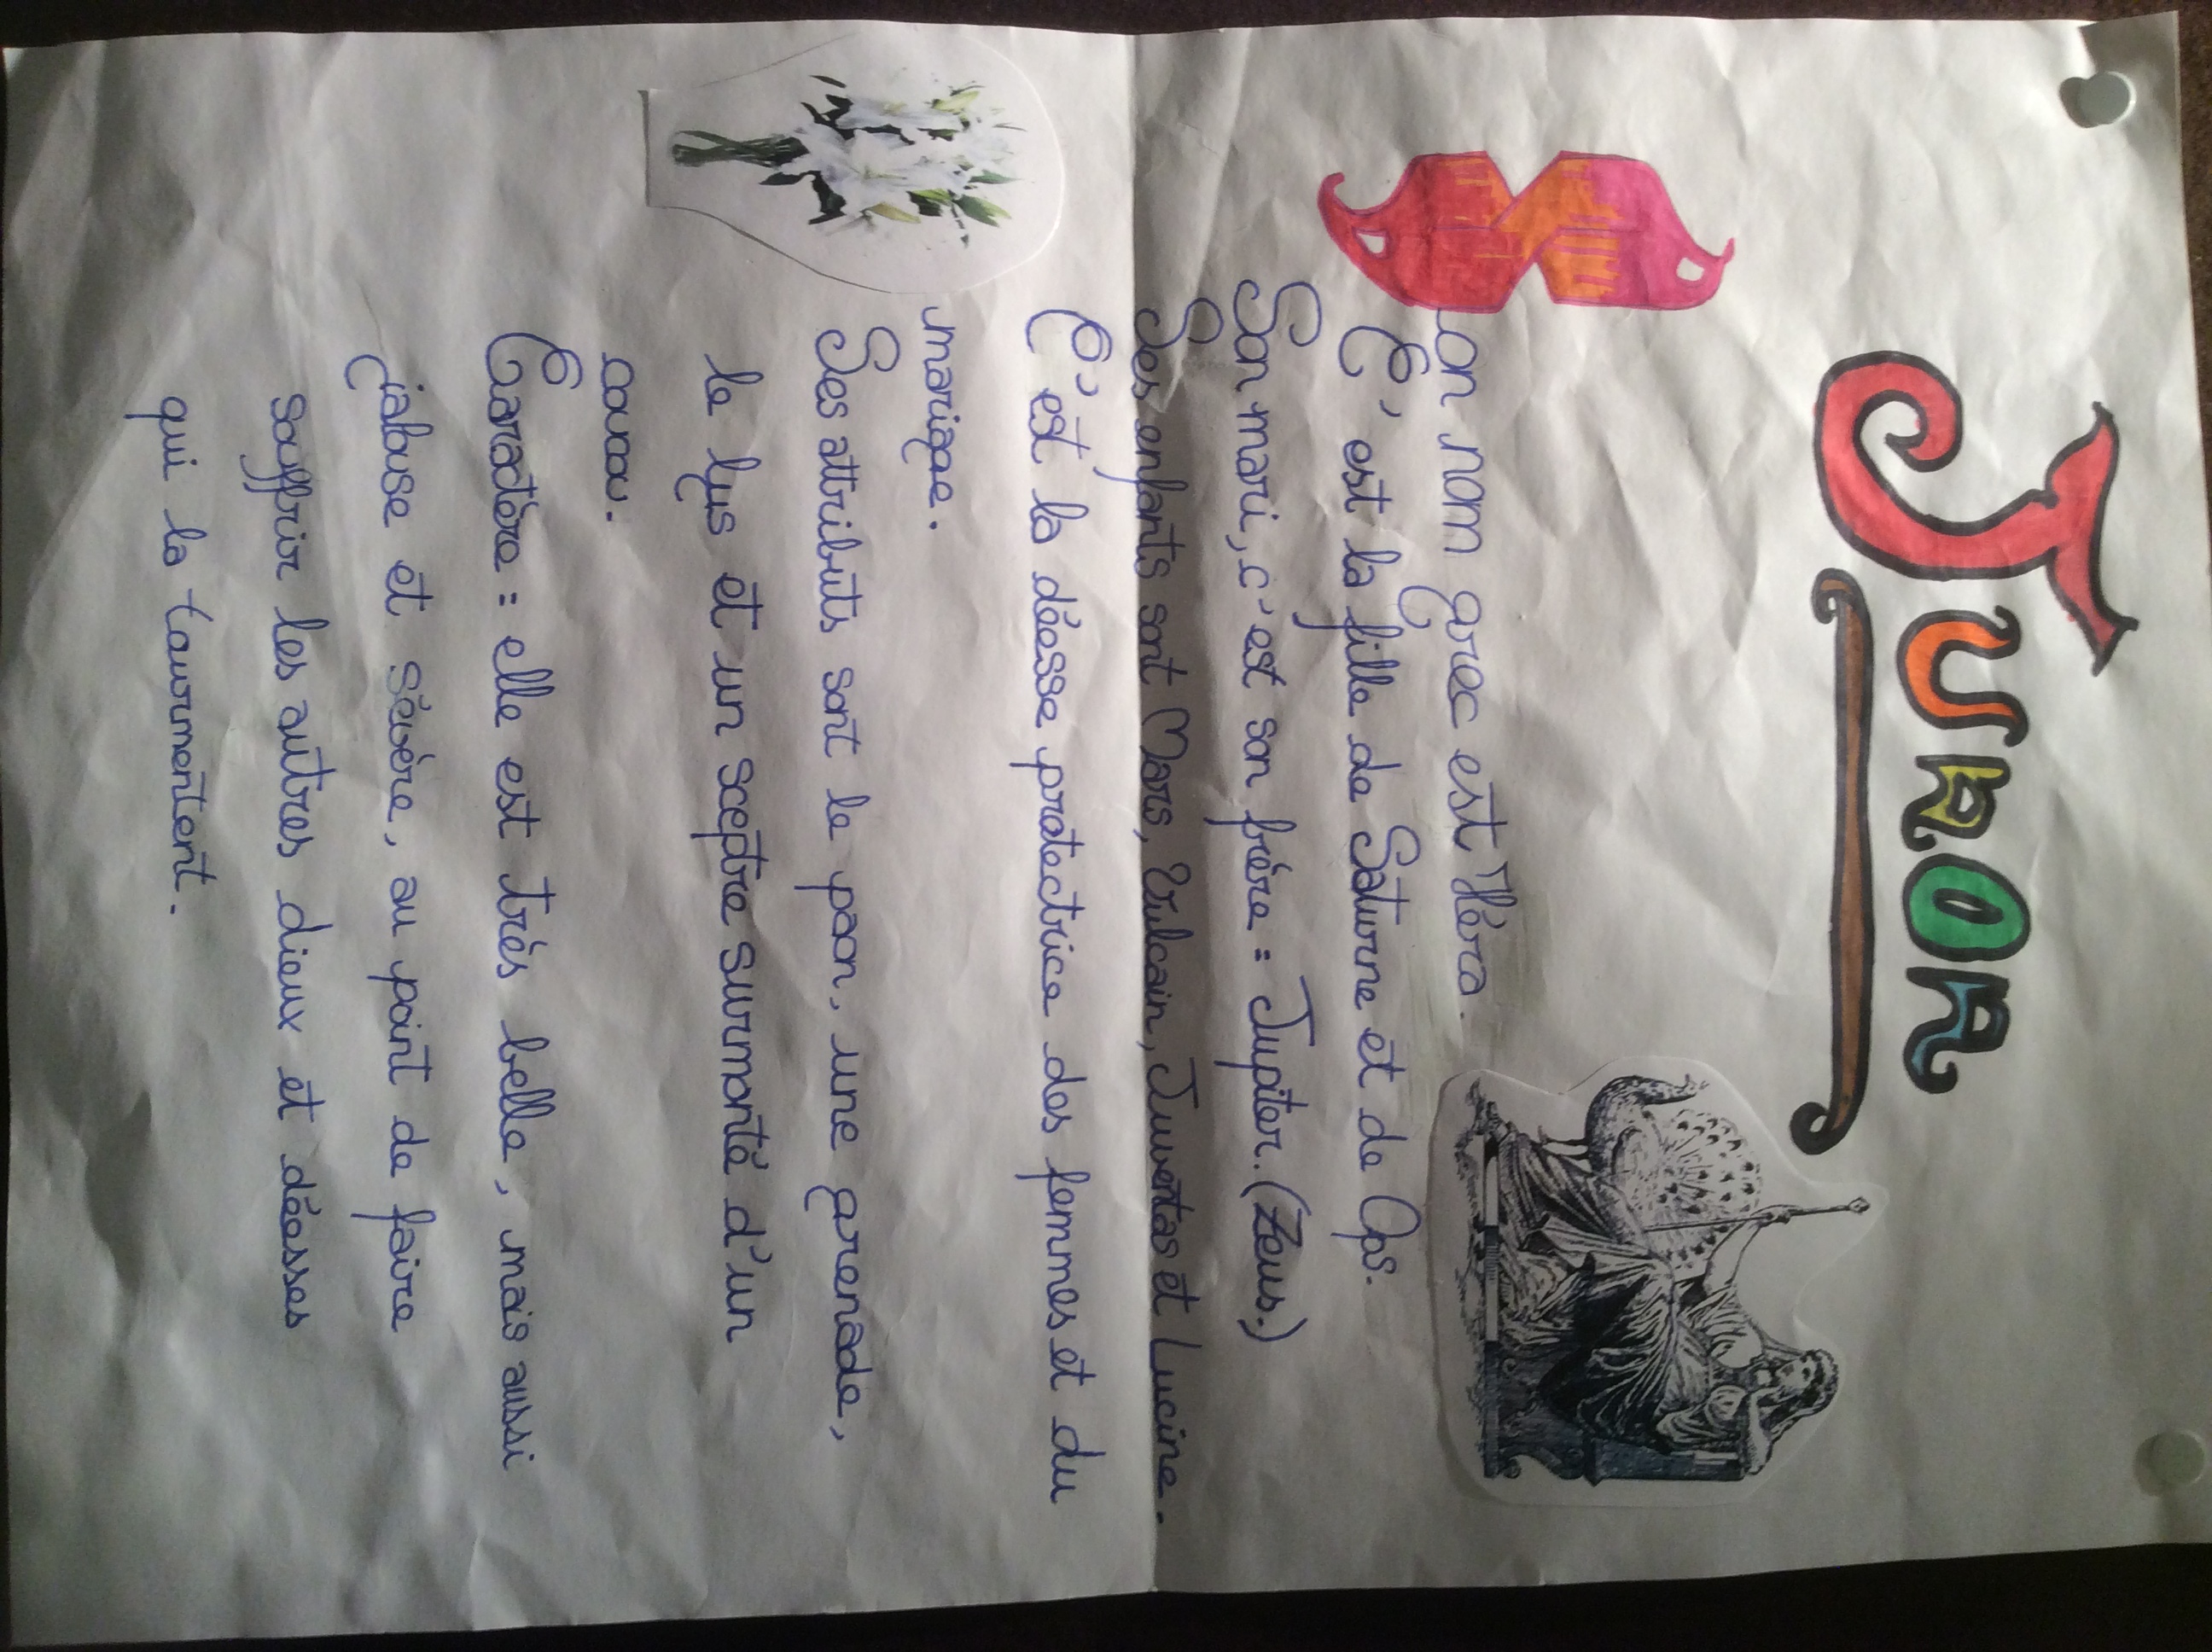 JUNON
Son nom grec est Héra
C'est la fille de Saturne et de Ops.
Son mari, c'est son frère = Jupiter. (Zeus.)
Ses enfants sont Mars, Vulcain, Juventas et Lucine.
C'est la déesse protectrice des femmes et du
mariage.
Ses attributs sont le paon, une grenade,
le lys et un sceptre surmonté d'un
coucou.
Caractère = elle est très belle, mais aussi
jalouse et sévère, au point de faire
souffrir les autres dieux et déesses
qui la tourmentent.